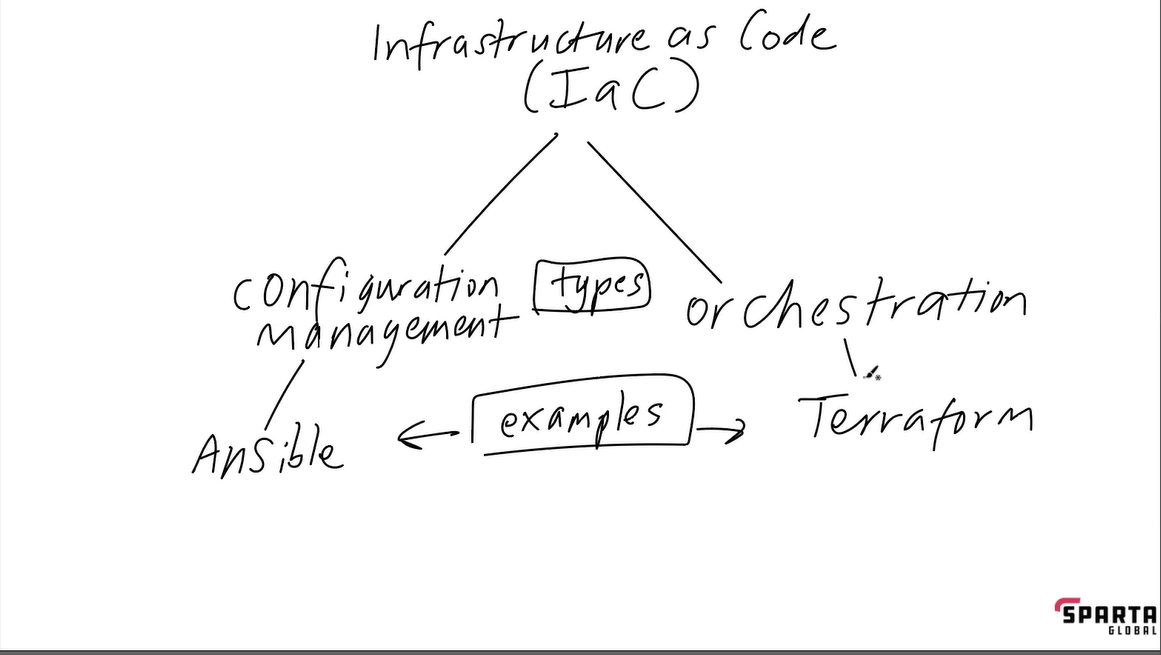 Infrastructure as Code
(IaC)
configuration
management
types
orchestration
examples
Ansible
Terraform
SPARTA
GLOBAL